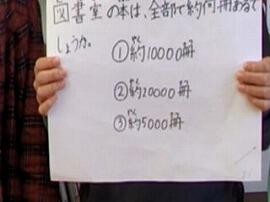 図書室の本は、全部で約何冊あるで
しょうか。
①約10000冊
②約20000冊
③約5000冊